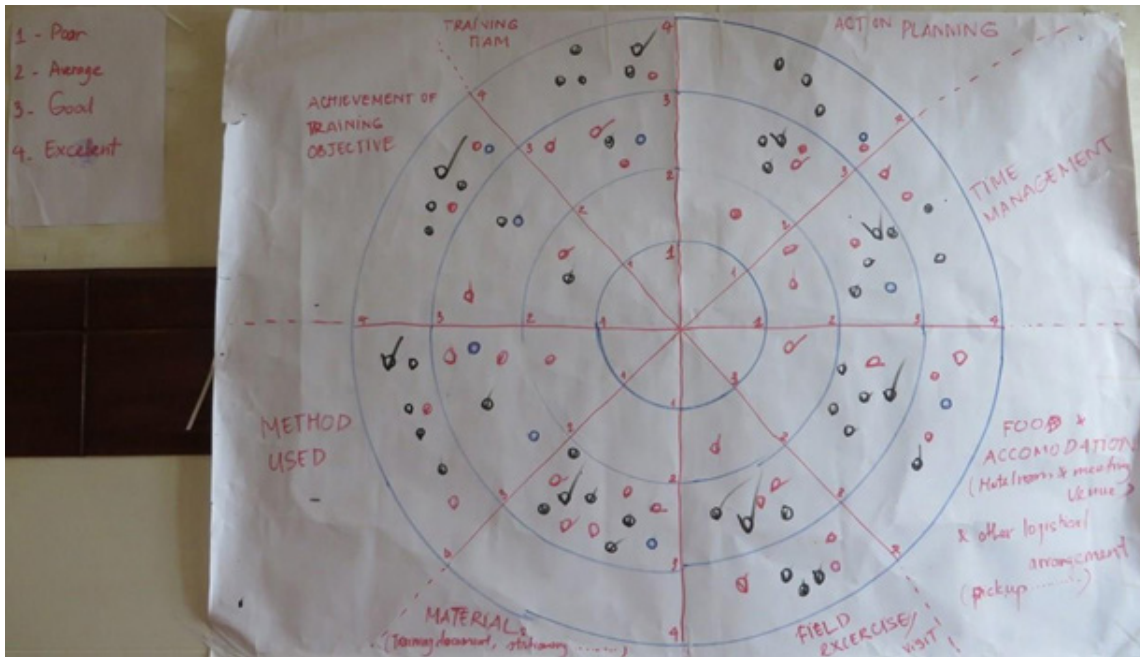 1 - Poor
2 - Average
3 - Good
4. Excelent
TRAINING
TEAM
ACTION PLANNING
ACHIEVEMENT OF
TRAINING
OBJECTIVE
TIME
MANAGEMENT
4
3
2
1
4
3
2
1
4
3
2
1
4 3 2 1
1 2 3 4
METHOD
USED
FOOD &
ACCOMODATION
(Hotel rooms & meeting
Venue)
& other logistical
arrangement
(pickup ........)
MATERIALS
(Training document, stationery ......)
FIELD
EXCERCISE/
VISIT